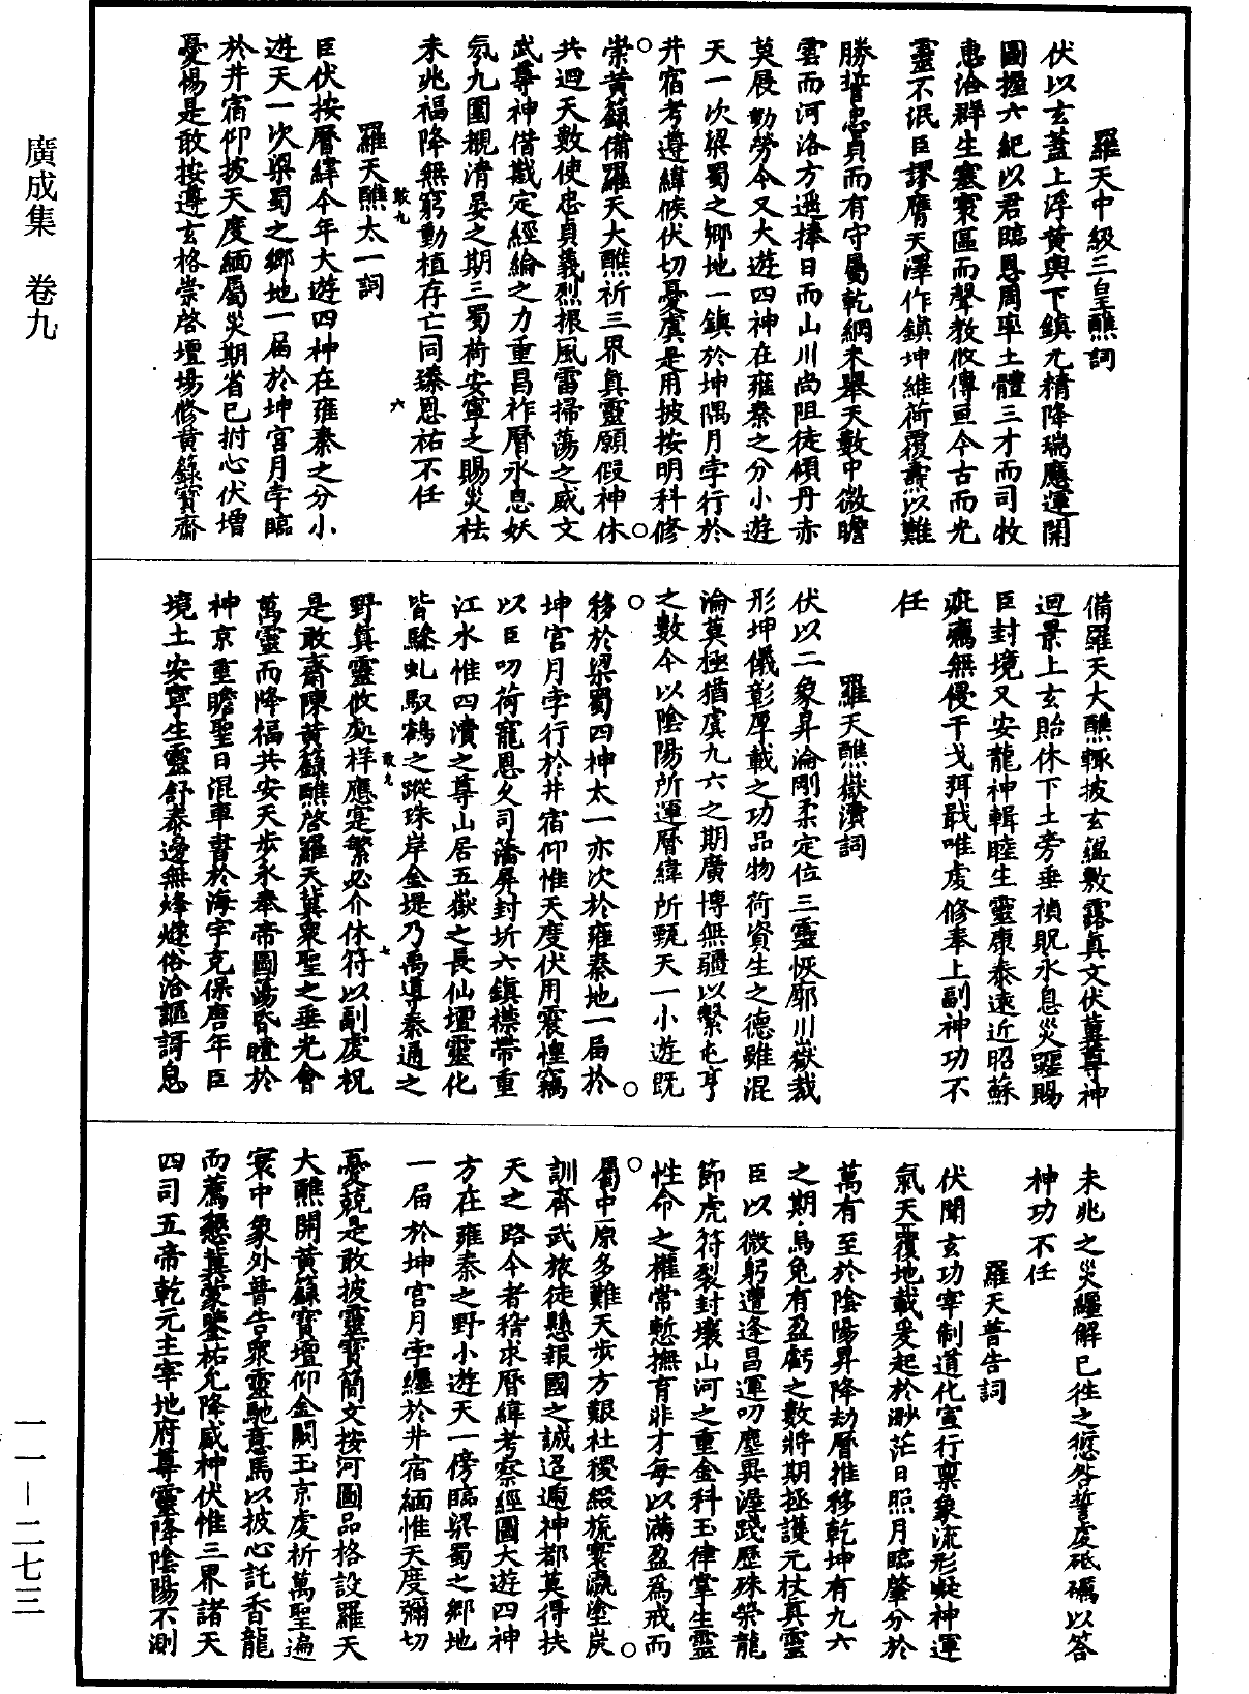 廣成集　卷九
羅天中級三皇醮詞
伏以玄蓋上浮黃輿下鎮元精降瑞應運開
圖握六紀以君臨恩周率土體三才而司牧
惠洽群生塞寰區而聲教攸傳亘今古而光
靈不泯臣謬膺天澤作鎮坤維荷覆燾以難
勝誓忠貞而有守屬乾綱未舉天數中微瞻
雲而河洛方遥捧日而山川尚阻徒傾丹赤
莫展勤勞今又大遊四神在雍秦之分小遊
天一次梁蜀之鄉地一鎮於坤隅月孛行於
井宿考遵緯候伏切憂虞是用披按明科修
崇黃籙備羅天大醮祈三界真靈願假神休
共迴天數使忠貞義烈振風雷掃蕩之威文
武尊神借戡定經綸之力重昌祚曆永息妖
氛九圍覩清晏之期三蜀荷安寧之賜災祛
未兆福降無窮動植存亡同臻恩祐不任
敢九
六
羅天醮太一詞
臣伏按曆緯今年大遊四神在雍秦之分小
遊天一次梁蜀之鄉地一屆於坤宮月孛臨
於井宿仰披天度緬屬災期省已拊心伏增
憂惕是敢按遵玄格崇啓壇場修黃籙寶齋
備羅天大醮輙披玄蘊敷露真文伏冀尊神
迴景上玄貽休下土旁垂禎貺永息災躔賜
臣封境乂安龍神輯睦生靈康泰遠近昭蘇
疵癘無侵干戈弭戢唯虔修奉上副神功不
任
羅天醮嶽瀆詞
伏以二象昇淪剛柔定位三靈恢廓川嶽裁
形坤儀彰厚載之功品物荷資生之德雖混
淪莫極猶虞九六之期廣博無疆以繫屯亨
之數今以陰陽所運曆緯所甄天一小遊既
移於梁蜀四神太一亦次於雍秦地一局於
坤宮月孛行於井宿仰惟天度伏用震惶竊
以臣叨荷寵恩久司藩屏封圻六鎮襟帶重
江水惟四瀆之尊山居五嶽之長仙壇靈化
皆驂虬馭鶴之蹤珠岸金堤乃禹導秦通之
敢九
七
野真靈攸處祥應寔繁必介休符以副虔祝
是敢齋陳黃籙醮啓羅天冀衆聖之垂光會
萬靈而降福共安天步永奉帝圖蕩昏曀於
神京重瞻聖日混車書於海宇克保唐年臣
境土安寧生靈舒泰邊無烽燧俗洽謳謌息
未兆之災纏解已徃之愆咎誓虔砥礪以答
神功不任
羅天普告詞
伏聞玄功宰制道化宣行稟象流形凝神運
氣天覆地載爰起於渺茫日照月臨肇分於
萬有至於陰陽昇降劫曆推移乾坤有九六
之期烏兔有盈虧之數將期極護元杖真靈
臣以微躬遭逢昌運叨塵異渥踐歷殊榮龍
節虎符裂封壤山河之重金科玉律掌生靈
性命之權常慙撫育非才每以滿盈為戒而
屬中原多難天步方艱社稷綴旒寰瀛塗炭
訓齊武旅徒懸報國之誠迢遞神都莫得扶
天之路今者稽求曆緯考察經圖大遊四神
方在雍秦之野小遊天一傍臨梁蜀之鄉地
一屆於坤宮月孛纏於井宿緬惟天度彌切
憂兢是敢披靈寶簡文按河圖品格設羅天
大醮開黃籙寶壇仰金闕玉京虔祈萬聖遍
寰中象外普告衆靈馳意馬以披心託香龍
而薦懇冀蒙鑒祐允降威神伏惟三界諸天
四司五帝乾元主宰地府尊靈降陰陽不測
一一－二七三